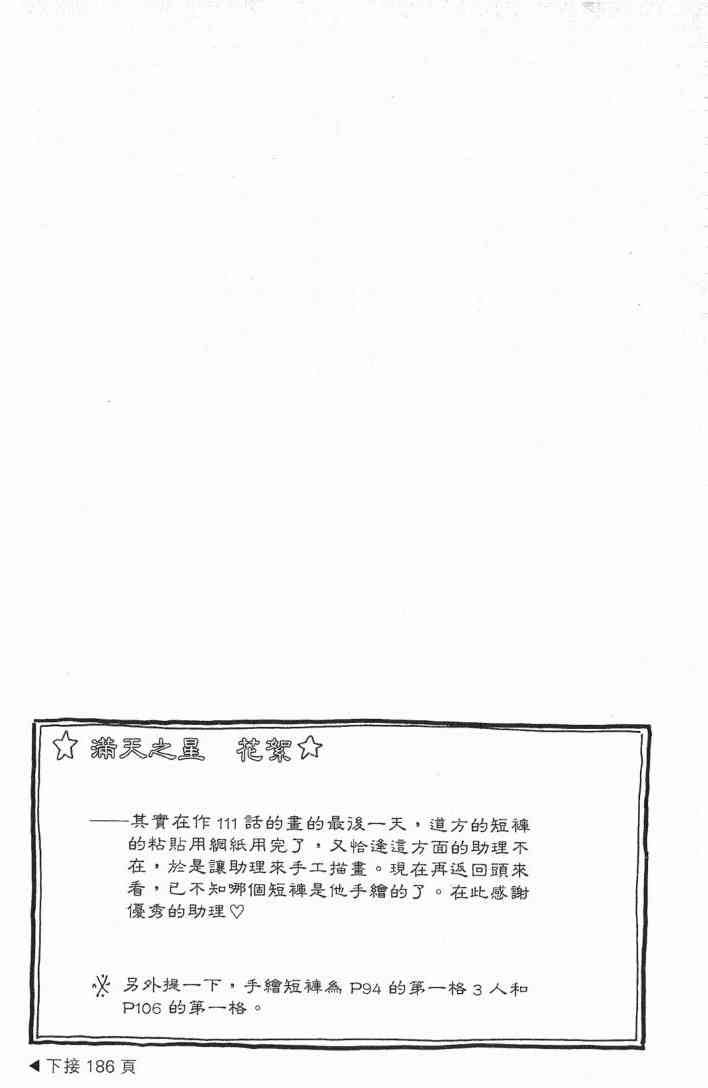 ☆ 滿天之星　花絮☆
——其實在作 111 話的畫的最後一天，道方的短褲
的粘貼用網紙用完了，又恰逢這方面的助理不
在，於是讓助理來手工描畫。現在再返回頭來
看，已不知哪個短褲是他手繪的了。在此感謝
優秀的助理♡
※ 另外提一下，手繪短褲為 P94 的第一格 3 人和
P106 的第一格。
◀下接 186 頁